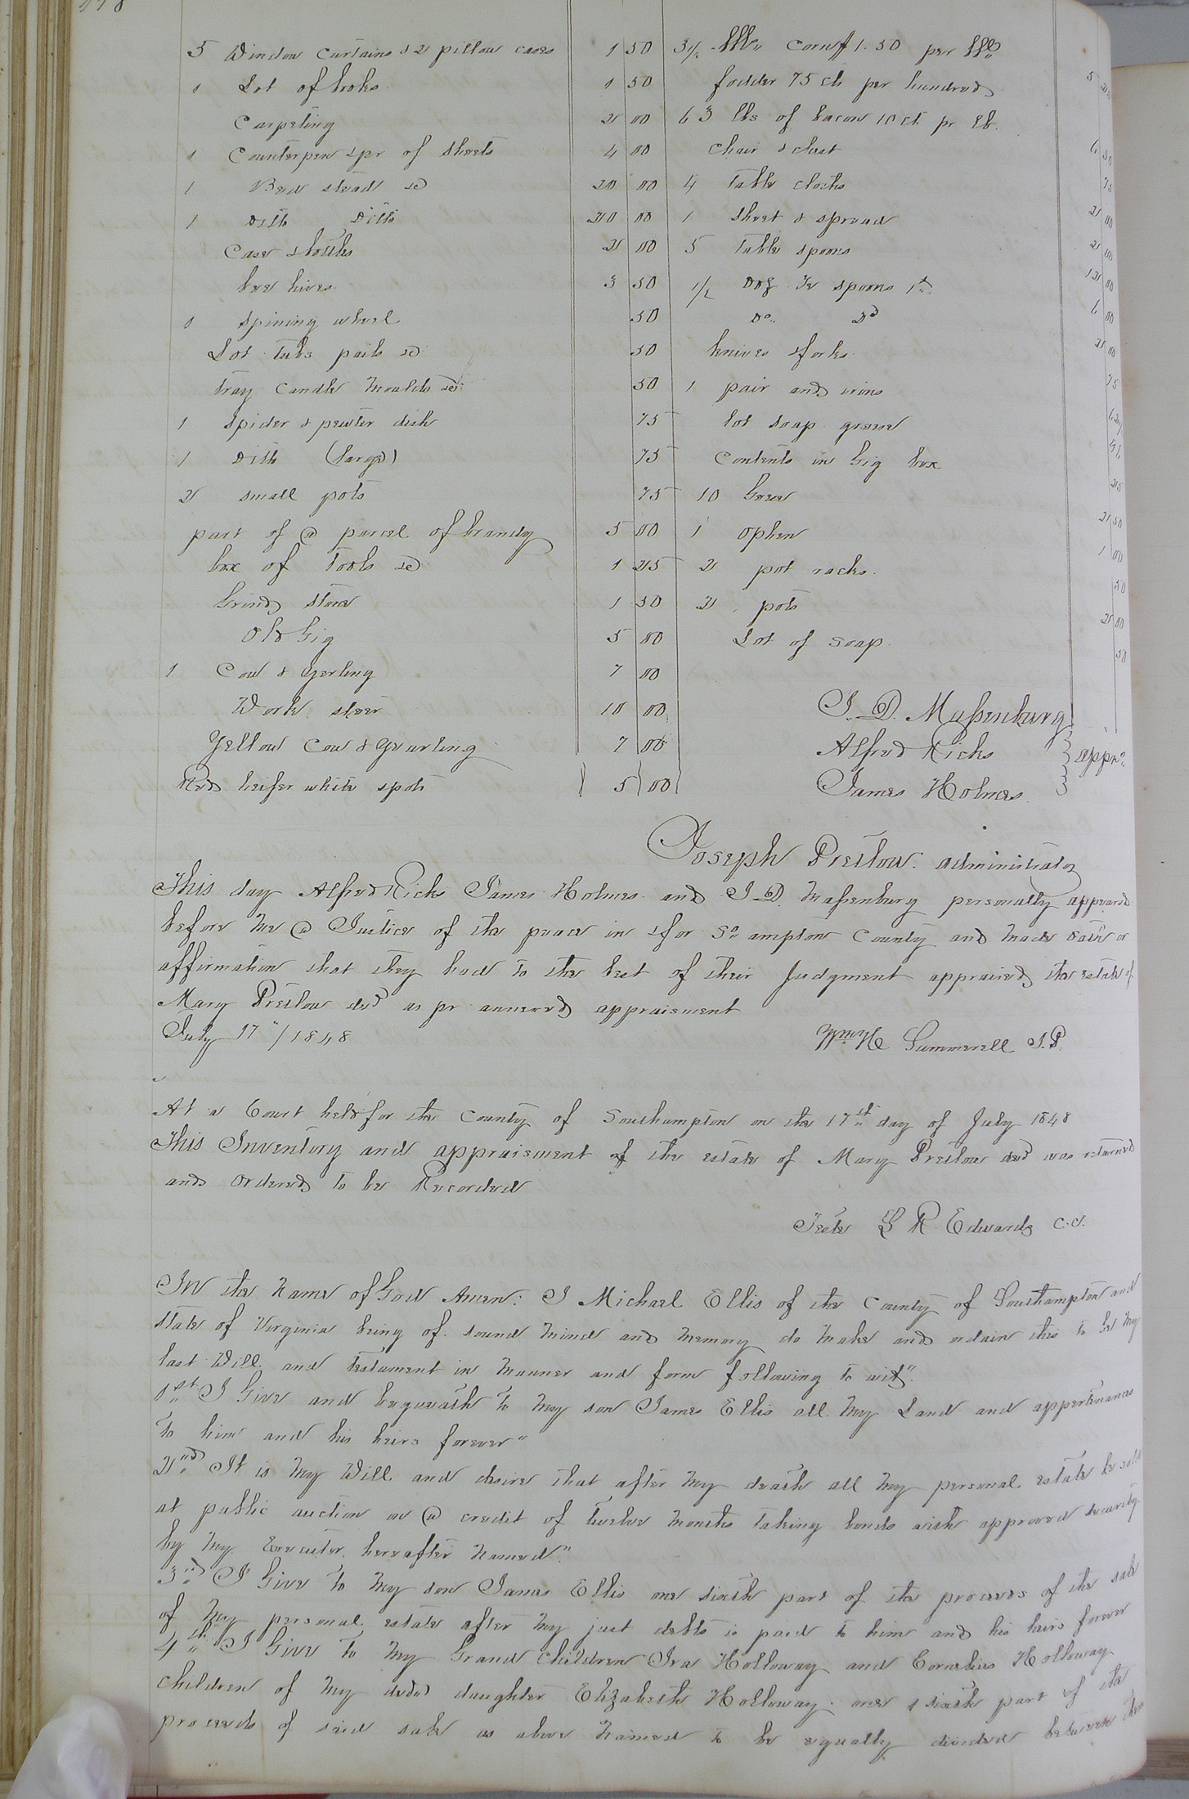 5 Window Curtains & 2 pillow cases 1 50
1 Lot of books 1 50
Carpeting 2 00
1 Counterpen & pr of Sheets 4 00
1 Bed stead &c 20 00
1 Ditto Ditto 20 00
Case & bottles 2 00
bee hives 3 50
1 Spining wheel 50
Lot tubs pails &c 50
tray Candle Moulds &c 50
1 Spider & pewter dish 75
1 Ditto (Large) 75
2 small pots 75
part of a parcel of brandy 5 00
box of Tools &c 1 25
Grind Stone 1 50
Old Gig 5 00
1 Cow & Yerling 7 00
Work steer 10 00
Yellow Cow & Yearling 7 00
Red heifer white spots 5 00
3½ bbls Corn @ 1.50 per bbl
fodder 75 cts per hundred
63 lbs of bacon 10 ct pr lb.
Chair & chest
4 Table cloths
1 Sheet & spread
5 Table spoons
1/2 doz Tea spoons 1st
Do. 2d
knives & forks
1 pair and irons
lot soap grease
Contents in big box
10 Geese
1 ophen
2 pot racks
2 pots
Lot of Soap
J. D. Massenburg
Alfred Ricks apprs
James Holmes
Joseph Pretlow administrator
This day Alfred Ricks James Holmes and J. D. Massenburg personally appeared
before me a Justice of the peace in & for So ampton County and made oath or
affirmation that they had to the best of their Judgment appraised the estate of
Mary Pretlow decd as pr annexed appraisement
July 17"/1848 Wm H Summerell J.P.
At a Court held for the County of Southampton on the 17th day of July 1848
This Inventory and appraisement of the estate of Mary Pretlow decd was returned
and Ordered to be Recorded
Teste L R Edwards C.C.
In the Name of God Amen: I Michael Ellis of the County of Southampton and
state of Virginia being of sound mind and memory do make and ordain this to be my
last Will and testament in manner and form following to wit"
1st I Give and bequeath to my son James Ellis all my Land and appertinances
to him and his heirs forever"
2nd It is my Will and desire that after my death all my personal estate be sold
at public auction on a credit of twelve months taking bonds with approved security
by my Executor hereafter named"
3rd I Give to my son James Ellis one sixth part of the proceeds of the sale
of my personal estate after my just debts is paid to him and his heirs forever
4th I Give to my Grand children Ira Holloway and Cornelius Holloway
Children of my decd daughter Elizabeth Holloway one sixth part of the
proceeds of said sale as above named to be equally divided between them